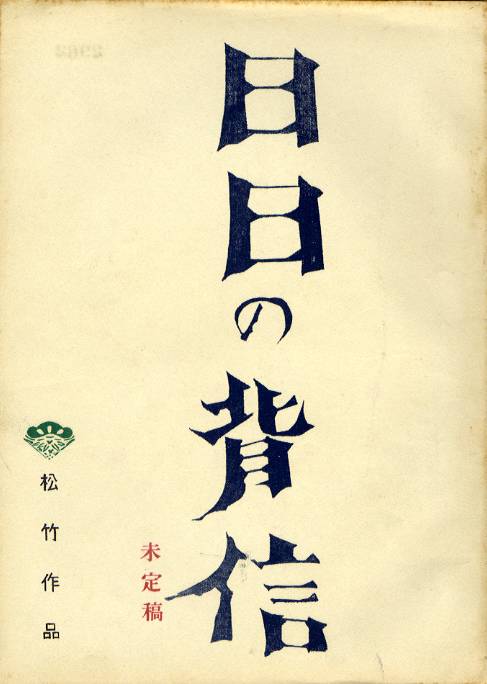 日日の背信
未定稿
松竹作品